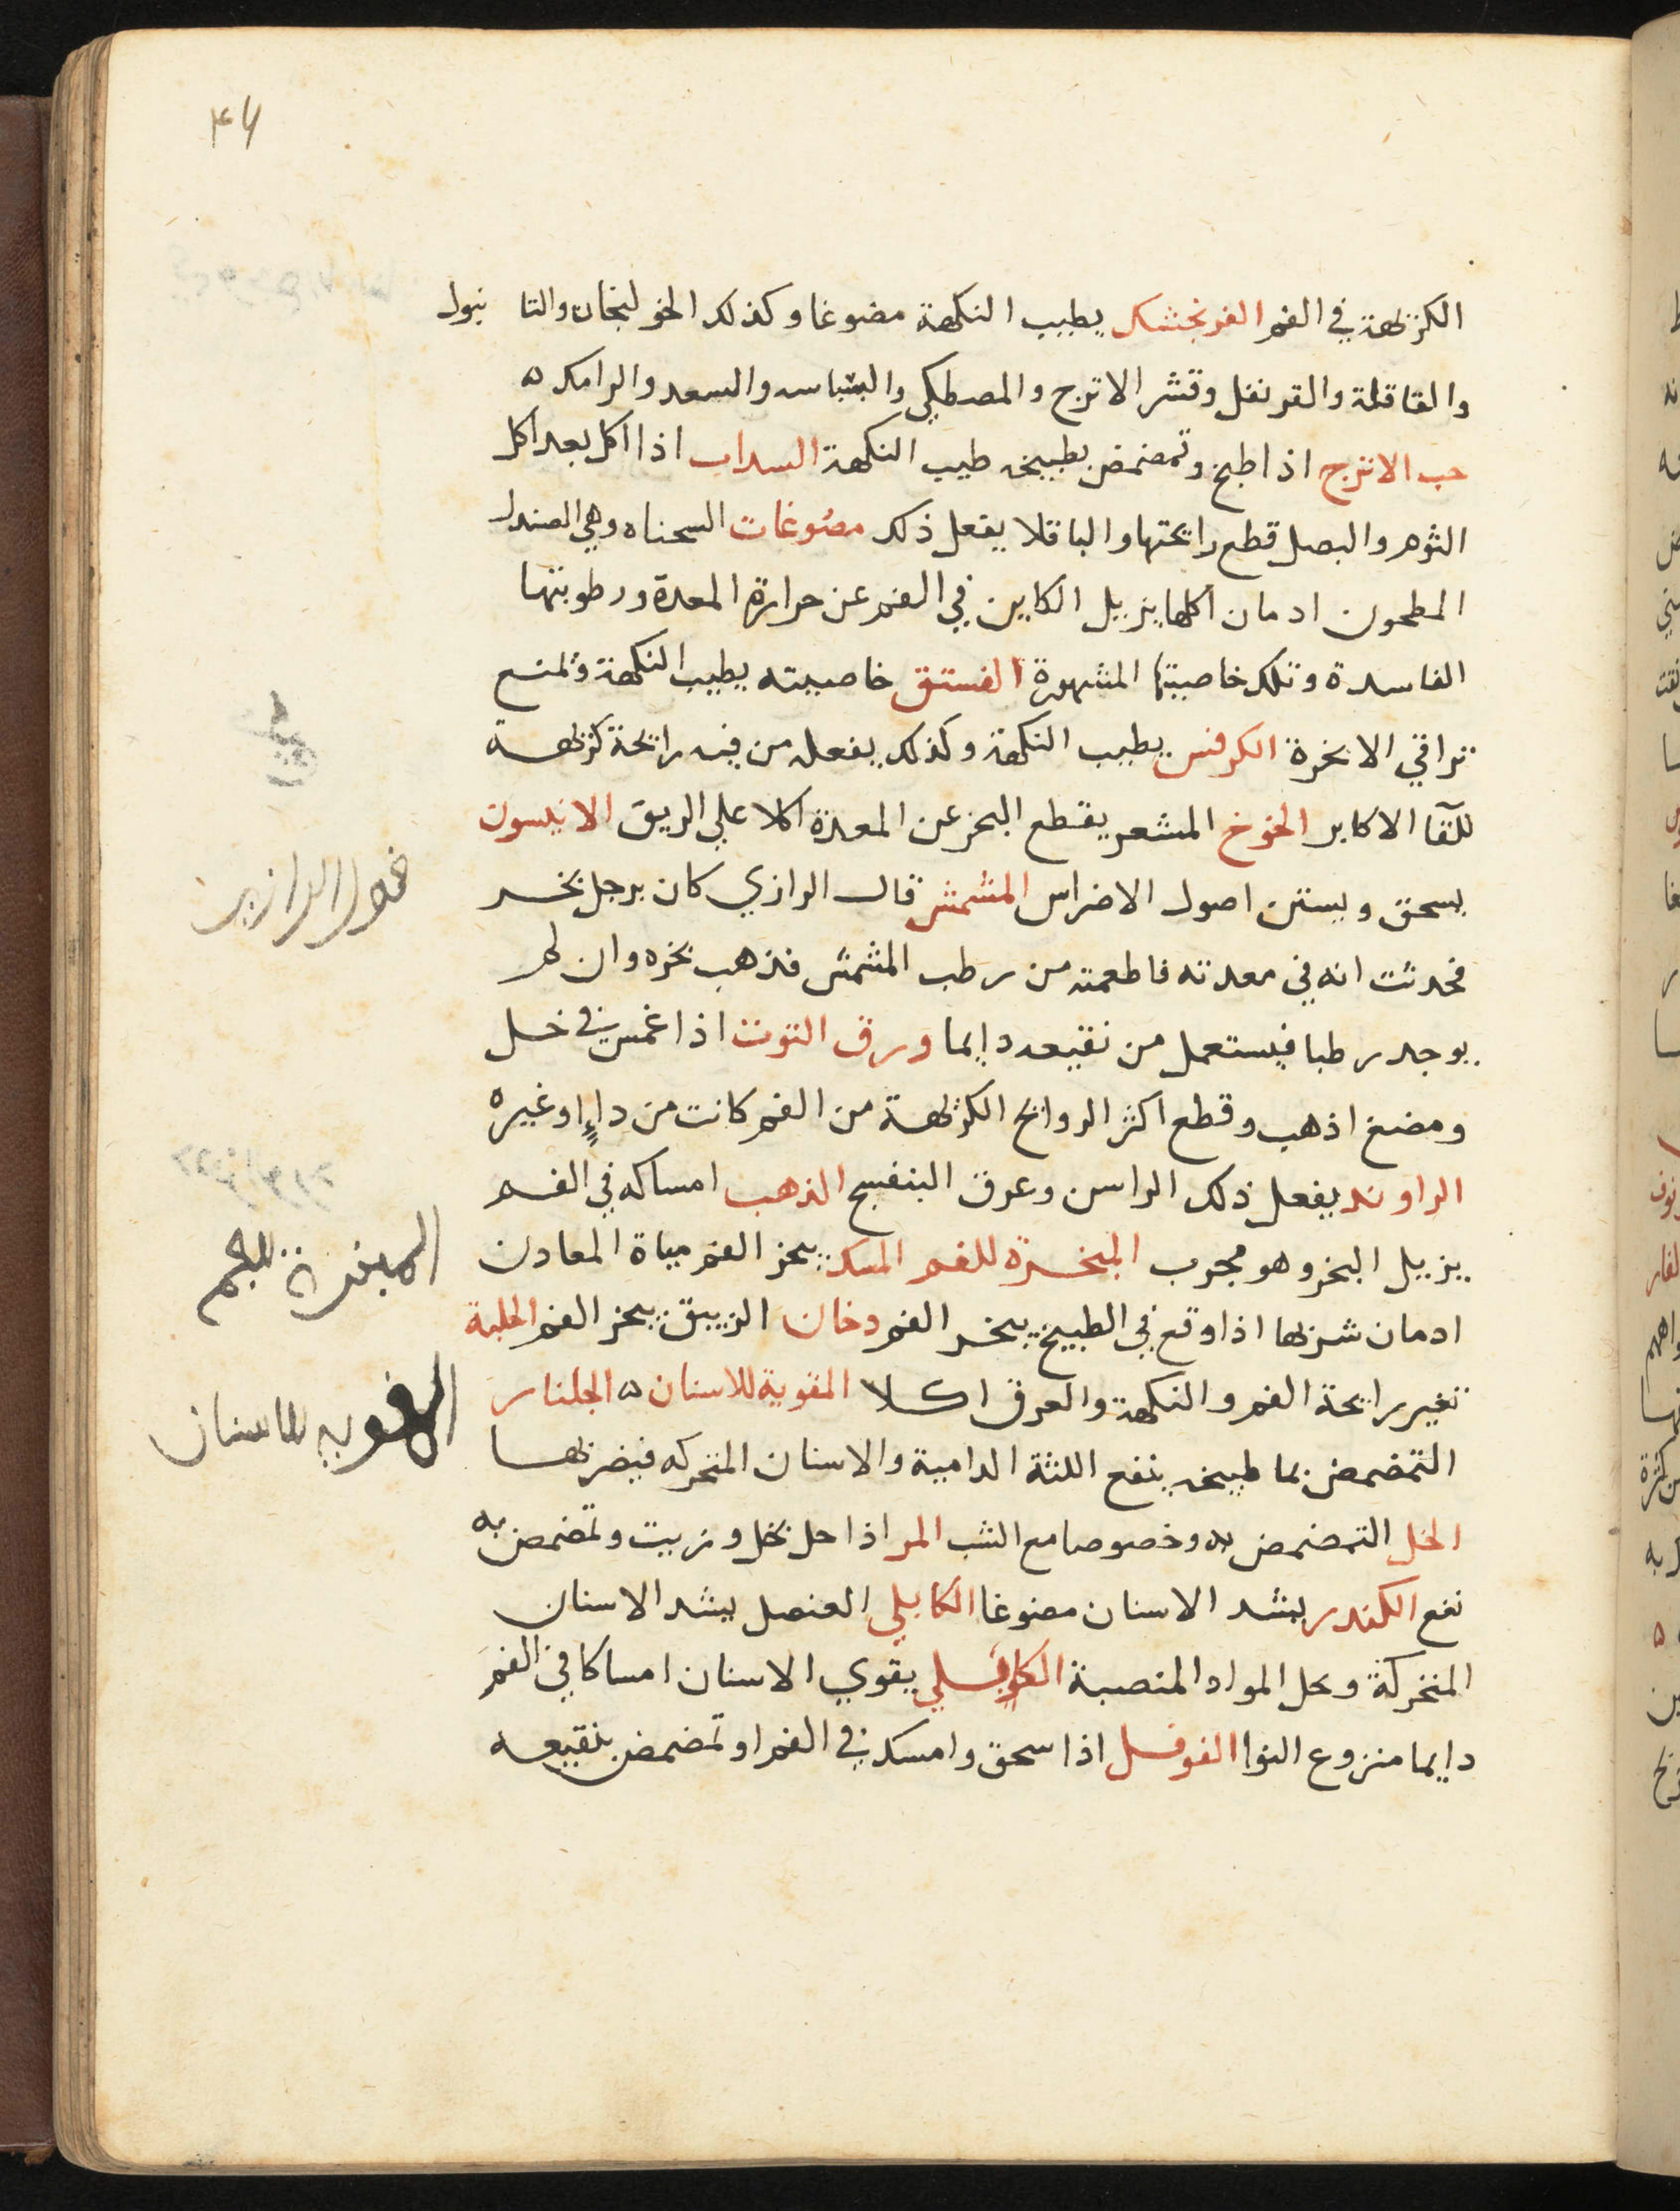 ٤٦
الكريهة في الفم الفرنجمشك يطيب النكهة مضوغا وكذلك الخولنجان والتا نبول
والقاقلة والقرنفل وقشر الاترج والمصطكي والبسباسه والسعد والرامك ٥
حب الاترج اذا طبخ وتمضمض بطبيخه طيب النكهة السداب اذا اكل بعد اكل
الثوم والبصل قطع رايحتها والباقلا يفعل ذلك مضوغات السحناه وهي الصندل
المطحون ادمان اكلها يزيل الكاين في الفم عن حرارة المعدة ورطوبتها
الفاسدة وتلك خاصيتها المشهورة الفستق خاصيته يطيب النكهة ويمنع
تراقي الابخرة الكرفس يطيب النكهة وكذلك يفعل من فيه رايحة كريهة
للقا الاكابر الخوخ المشعر يقطع البخر عن المعدة اكلا علي الريق الانيسون
يسحق ويستن اصول الاضراس المشمش قال الرازي كان برجل بخر
فحدثت انه في معدته فاطعمته من رطب المشمش فذهب بخره وان لم
يوجد رطبا فيستعمل من نقيعه دايما ورق التوت اذا غمس في خل
ومضغ اذهب وقطع اكثر الروايح الكريهة من الفم كانت من داء او غيره
الراوند يفعل ذلك الراسن وعرق البنفسج الذهب امساكه في الفم
يزيل البخر وهو مجرب المبخرة للفم المسك يبخر الفم مياة المعادن
ادمان شربها اذا وقع في الطبيخ يبخر الفم دخان الزيبق يبخر الفم الحلبة
تغير رايحة الفم والنكهة والعرق اكلا المقوية للاسنان ٥ الجلنار
التمضمض بما طبيخه ينفع اللثة الدامية والاسنان المتحركه فيضربها
الخل التمضمض به وخصوصا مع الشب المر اذا حل بخل وزيت وتمضمض به
نفع الكندر يشد الاسنان مضوغا الكابلي العنصل يشد الاسنان
المتحركة ويحل المواد المنصبة الكابلي يقوي الاسنان امساكا في الفم
دايما منزوع النوا الفوفل اذا سحق وامسك في الفم او تمضمض بنقيعه
المبخرة للفم
المقويه للاسنان